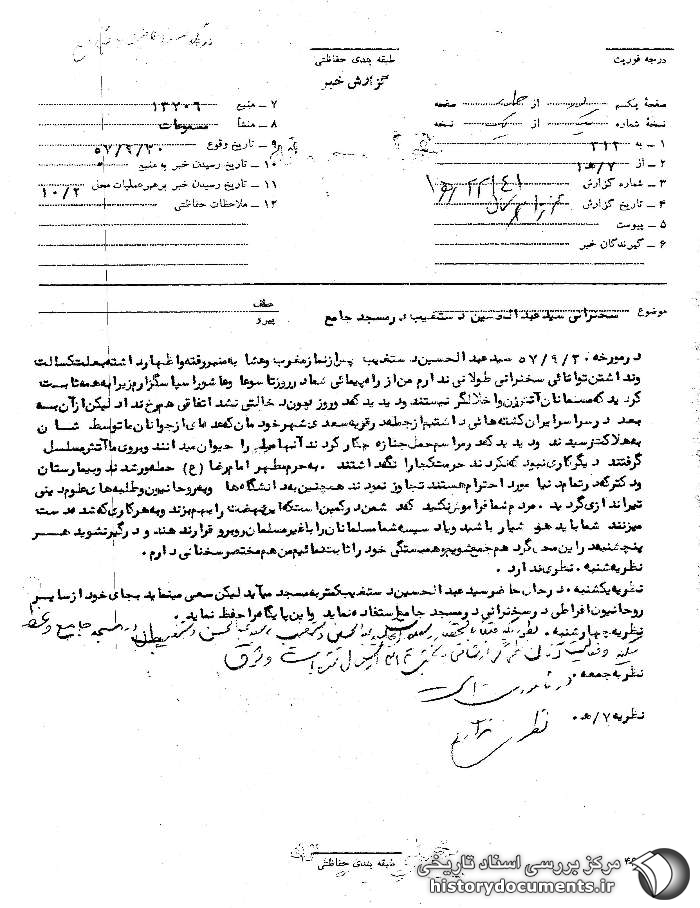 درجه فوریت
طبقه بندی حفاظتی
گزارش خبر
صفحه یکم از صفحه
نسخه شماره از نسخه
۱ ـ به ۳۱۲
۲ ـ از ۷/ه ۱
۳ ـ شماره گزارش
۴ ـ تاریخ گزارش
۵ ـ پیوست
۶ ـ گیرندگان خبر
۷ ـ منبع ۱۳۲۰۶
۸ ـ منشأ مسموعات
۹ ـ تاریخ وقوع ۵۷/۹/۲۰
۱۰ ـ تاریخ رسیدن خبر به منبع
۱۱ ـ تاریخ رسیدن خبر برهبر عملیات محلی ۱۰/۲
۱۲ ـ ملاحظات حفاظتی
موضوع سخنرانی سید عبدالحسین دستغیب در مسجد جامع
عطف
پیرو
در مورخه ۵۷/۹/۲۰ سید عبدالحسین دستغیب پس از نماز مغرب و عشا به منبر رفته و اظهار داشته بعلت کسالت
و نداشتن توانائی سخنرانی طولانی ندارم من از راه پیمائی شما در روز تاسوعا و عاشورا سپاسگزارم زیرا به همه ثابت
کردید که مسلمانان آتش زن و اخلالگر نیستند و دیدید که دو روز چون دخالتی نشد اتفاقی هم رخ نداد لیکن از آن به
بعد در سراسر ایران کشته هائی داشتیم از جمله در قریه سعدی شهر خودمان که عده ای از جوانان ما توسط شان
به هلاکت رسیدند و دیدید که در مراسم حمل جنازه چکار کردند آنها مردم را حیوان میدانند و بروی ما آتش مسلسل
گرفتند دیگر کاری نبود که نکردند حرمت کجا را نگه داشتند. به حرم مطهر امام رضا (ع) حمله ور شدند و بیمارستان
و دکتر که در تمام دنیا مورد احترام هستند تجاوز نمودند همچنین به دانشگاه ها و به روحانیون و طلبه های علوم دینی
تیراندازی گردید. مردم شما فراموش نکنید که دشمن در کمین است که این نهضت را بهم بزند و به هر کاری که شده دست
میزنند شما باید هوشیار باشید و با دسیسه شما مسلمانان را با غیر مسلمان روبرو قرار ندهند و درگیر نشوید هر
پنجشنبه در این محل گرد هم جمع شویم و همبستگی خود را ثابت نمائیم من هم مختصر سخنانی دارم.
نظریه شنبه. نظری ندارد.
نظریه یکشنبه. در حال حاضر سید عبدالحسین دستغیب کمتر به مسجد میآید لیکن سعی مینماید بجای خود از سایر
روحانیون افراطی در سخنرانی در مسجد جامع استفاده نماید و این پایگاه را حفظ نماید.
نظریه چهارشنبه.
نظریه جمعه.
نظریه ۷/ه.
نظری ندارم
طبقه بندی حفاظتی
مرکز بررسی اسناد تاریخی
historydocuments.ir